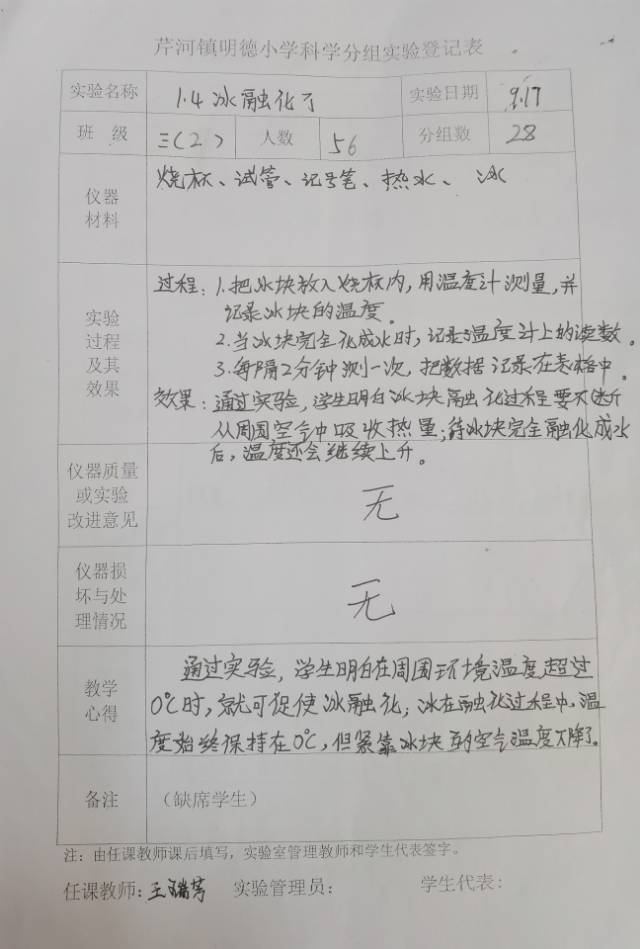 芹河镇明德小学科学分组实验登记表
实验名称 1.4冰融化了 实验日期 9.17
班 级 三(2) 人数 56 分组数 28
仪器
材料
烧杯、试管、记号笔、热水、冰
实验
过程
及其
效果
过程：1.把冰块放入烧杯内,用温度计测量,并
记录冰块的温度。
2.当冰块完全化成水时,记录温度计上的读数。
3.每隔2分钟测一次,把数据记录在表格中。
效果：通过实验,学生明白冰块融化过程要不断
从周围空气中吸收热量;待冰块完全融化成水
后,温度还会继续上升。
仪器质量
或实验
改进意见
无
仪器损
坏与处
理情况
无
教学
心得
通过实验,学生明白在周围环境温度超过
0℃时,就可促使冰融化;冰在融化过程中,温
度始终保持在0℃,但紧靠冰块的空气温度下降了。
备注 （缺席学生）
注：由任课教师课后填写，实验室管理教师和学生代表签字。
任课教师：王瑞芳 实验管理员： 学生代表：